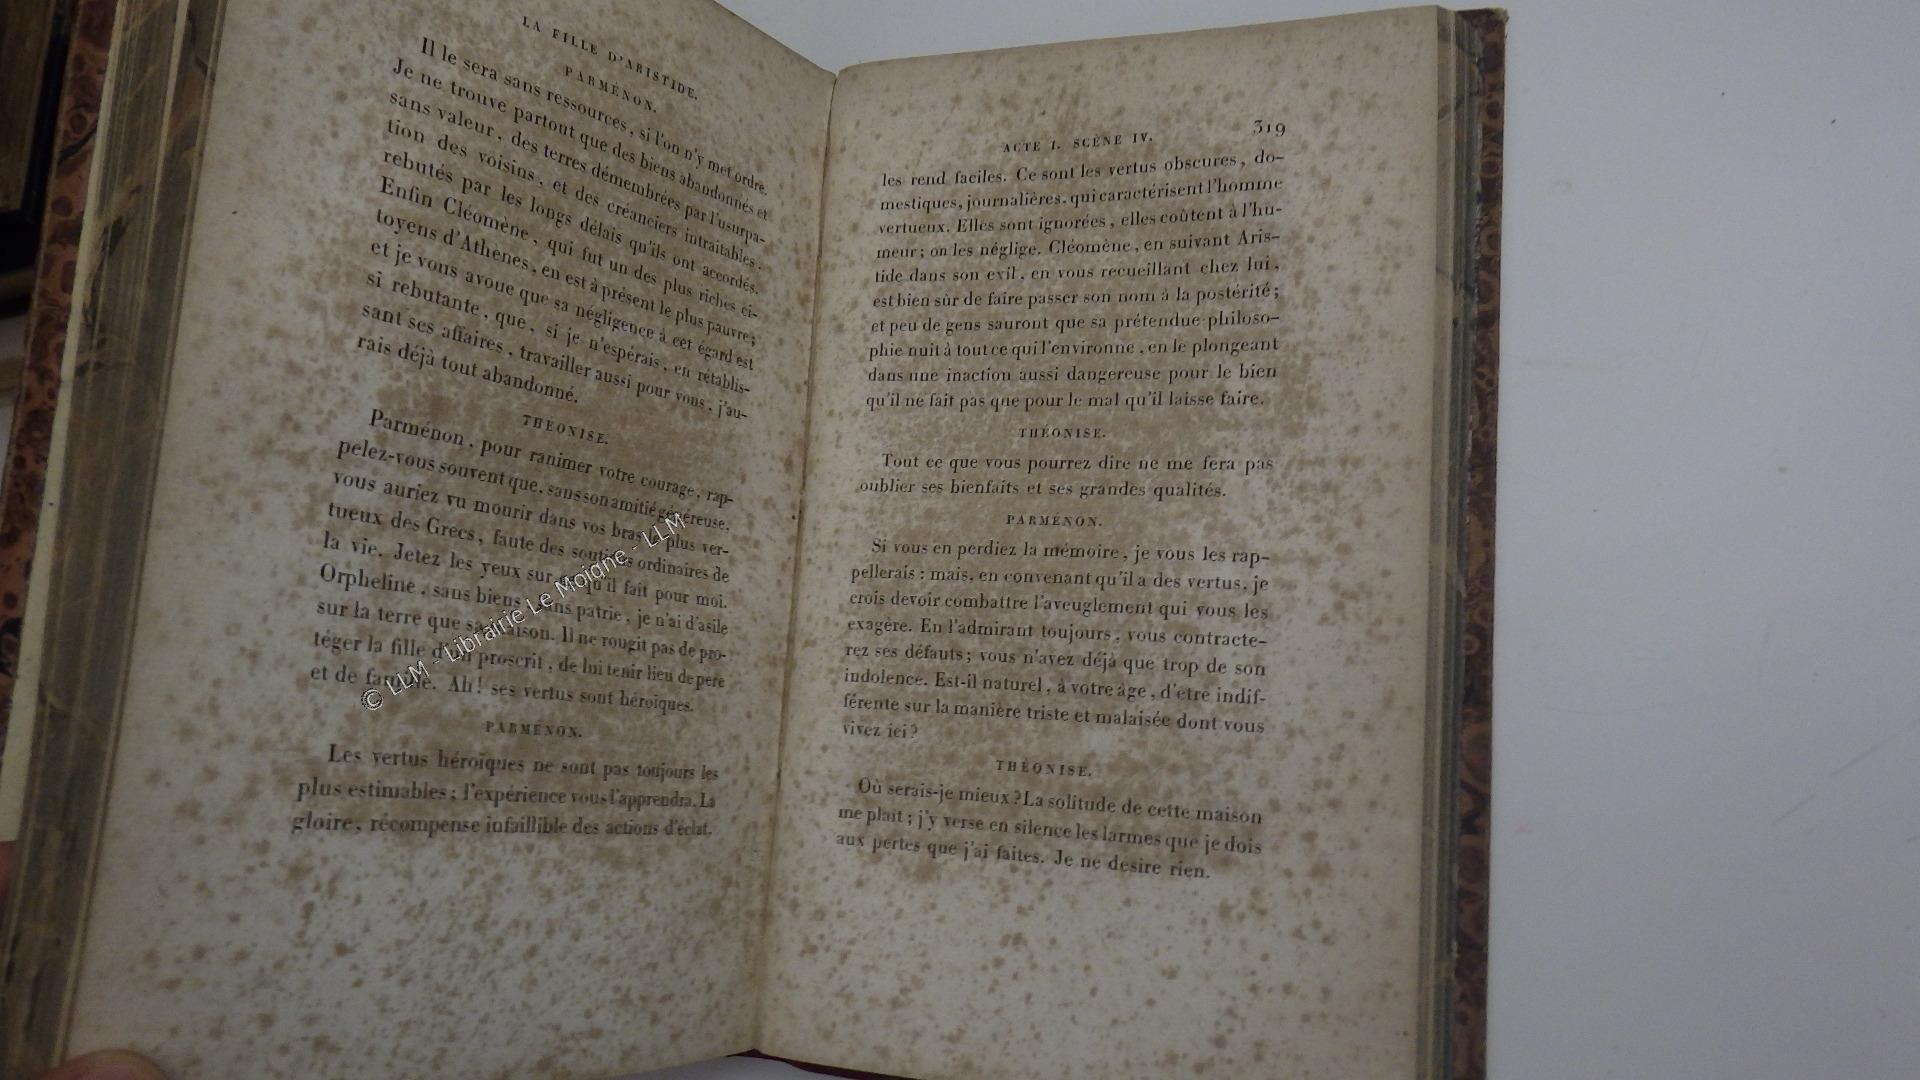 LA FILLE D'ARISTIDE.
PARMÉNON.
Il le sera sans ressources, si l'on n'y met ordre.
Je ne trouve partout que des biens abandonnés et
sans valeur, des terres démembrées par l'usurpa-
tion des voisins, et des créanciers intraitables,
rebutés par les longs délais qu'ils ont accordés.
Enfin Cléomène, qui fut un des plus riches ci-
toyens d'Athènes, en est à présent le plus pauvre;
et je vous avoue que sa négligence à cet égard est
si rebutante, que, si je n'espérais, en rétablis-
sant ses affaires, travailler aussi pour vous, j'au-
rais déjà tout abandonné.
THÉONISE.
Parménon, pour ranimer votre courage, rap-
pelez-vous souvent que, sans son amitié généreuse,
vous auriez vu mourir dans vos bras plus ver-
tueux des Grecs, faute des soutiens ordinaires de
la vie. Jetez les yeux sur qu'il fait pour moi.
Orpheline, sans biens, sans patrie, je n'ai d'asile
sur la terre que sa maison. Il ne rougit pas de pro-
téger la fille d'un proscrit, de lui tenir lieu de père
et de famille. Ah! ses vertus sont héroïques.
PARMÉNON.
Les vertus héroïques ne sont pas toujours les
plus estimables; l'expérience vous l'apprendra. La
gloire, récompense infaillible des actions d'éclat,
© LLM - Librairie Le Moigne - LLM
ACTE I. SCÈNE IV. 319
les rend faciles. Ce sont les vertus obscures, do-
mestiques, journalières, qui caractérisent l'homme
vertueux. Elles sont ignorées, elles coûtent à l'hu-
meur; on les néglige. Cléomène, en suivant Aris-
tide dans son exil, en vous recueillant chez lui,
est bien sûr de faire passer son nom à la postérité;
et peu de gens sauront que sa prétendue philoso-
phie nuit à tout ce qui l'environne, en le plongeant
dans une inaction aussi dangereuse pour le bien
qu'il ne fait pas que pour le mal qu'il laisse faire.
THÉONISE.
Tout ce que vous pourrez dire ne me fera pas
oublier ses bienfaits et ses grandes qualités.
PARMÉNON.
Si vous en perdiez la mémoire, je vous les rap-
pellerais : mais, en convenant qu'il a des vertus, je
crois devoir combattre l'aveuglement qui vous les
exagère. En l'admirant toujours, vous contracte-
rez ses défauts; vous n'avez déjà que trop de son
indolence. Est-il naturel, à votre âge, d'être indif-
férente sur la manière triste et malaisée dont vous
vivez ici?
THÉONISE.
Où serais-je mieux? La solitude de cette maison
me plaît; j'y verse en silence les larmes que je dois
aux pertes que j'ai faites. Je ne desire rien.